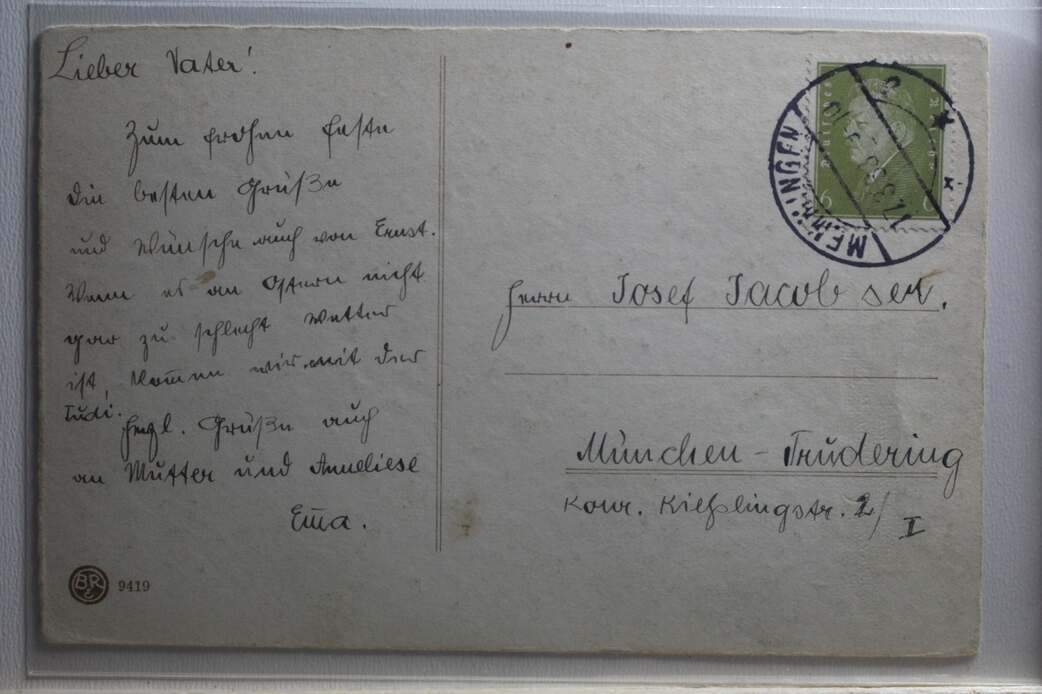 Lieber Vater!
Zum frohen Feste
die besten Grüße
und Wünsche auch von Ernst.
Wenn es an Ostern nicht
gar zu schlecht Wetter
ist, kom̅en wir mit der
Trudi.
Herzl. Grüße auch
an Mutter und Anneliese
Em̅a.
BR
9419
6
6
MEMMINGEN
Herrn Josef Jacob sen.
München-Trudering
Konr. Kießlingstr. 2/I